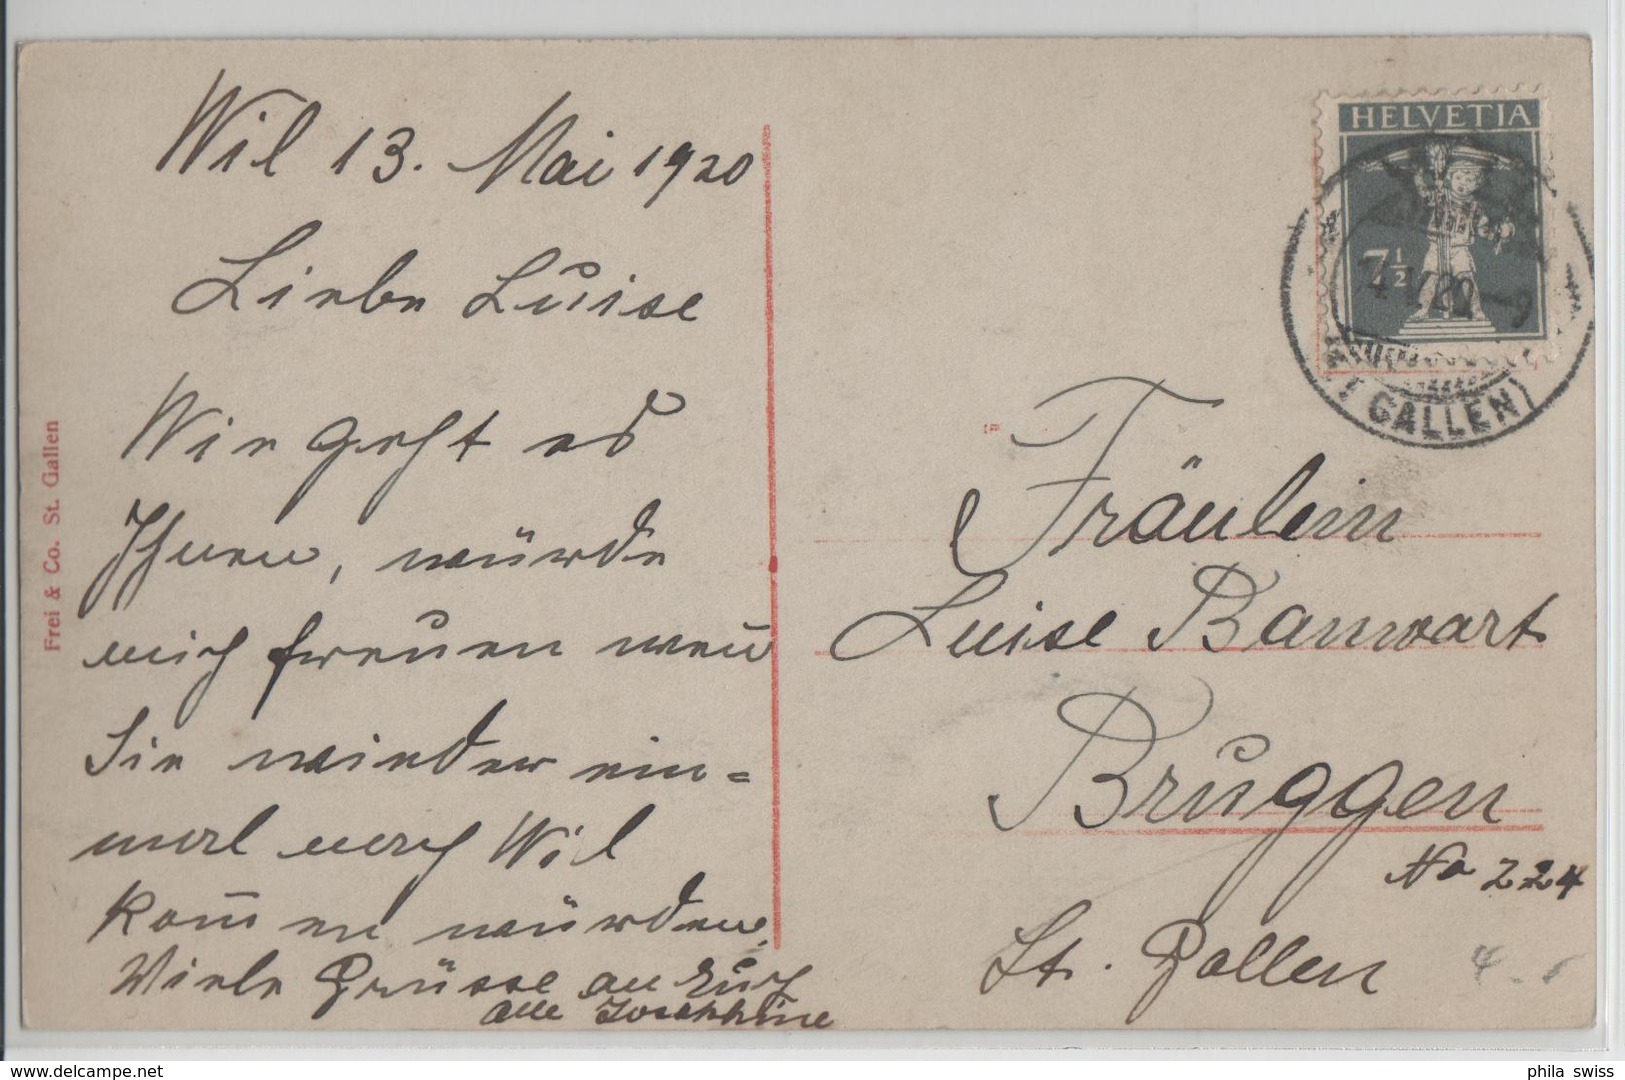 Wil 13. Mai 1920
Liebe Luise
Wie geht es
Ihnen, würde
mich freuen wenn
Sie wieder ein=
mal nach Wil
kom̅en würden.
Viele Grüsse an Euch
alle Josephine
Frei & Co. St. Gallen
HELVETIA
7½
14.V.20-9
(ST. GALLEN)
Fräulein
Luise Banwart
Bruggen
No 224
St. Gallen
phila swiss